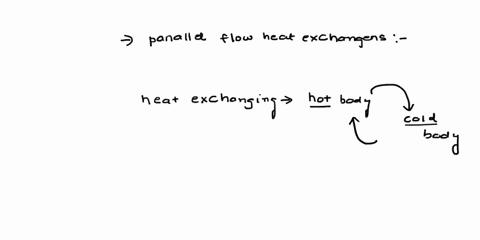 → parallel flow heat exchangers :-
heat exchanging → hot body
cold
body